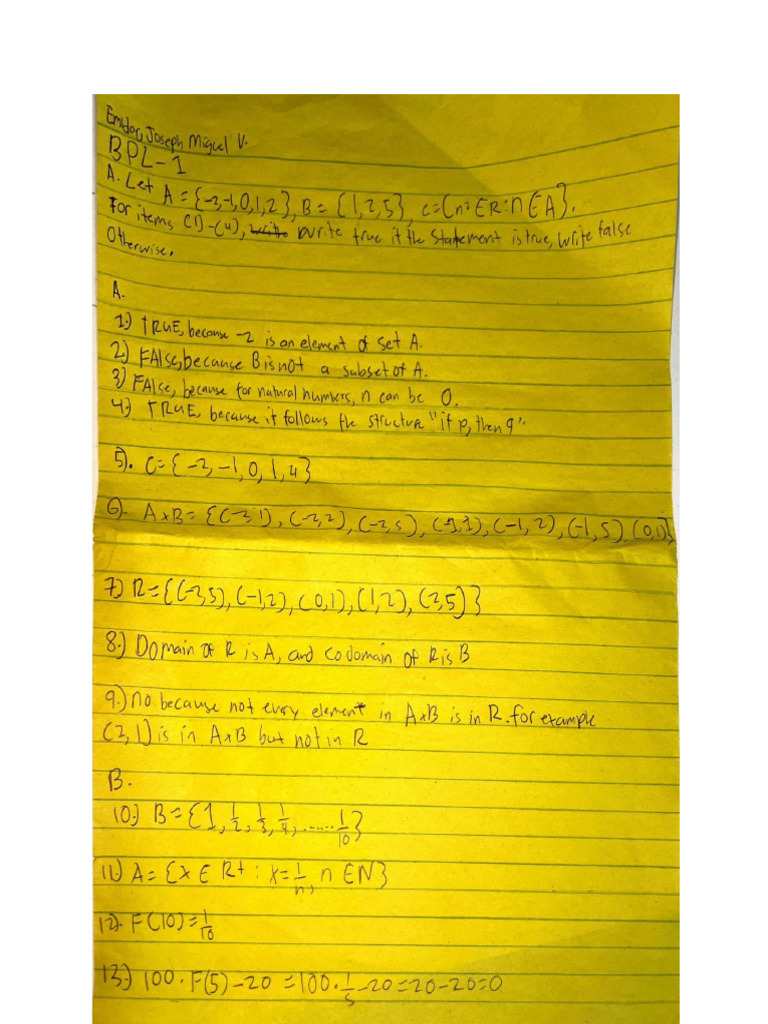 Joseph Miguel V.
BPL-1
A. Let A = {-2,-1,0,1,2}, B = {1,2,5}, C={n²ER:n EA}.
For items (1)-(4), write true if the statement is true, write false
Otherwise.
A.
1.) TRUE, because -2 is an element of set A.
2.) FAlse, because B is not a subset of A.
3) FAlse, because for natural numbers, n can be 0.
4) TRUE, because it follows the structure "if p, then q"
5). C={-2,-1,0,1,4}
6). A×B= {(-2,1), (-2,2), (-2,5), (-1,1), (-1,2), (-1,5), (0,1)},
7) R={(-2,5), (-1,2), (0,1), (1,2), (2,5)}
8.) Domain of R is A, and codomain of R is B
9.) no because not every element in AxB is in R. for example
(2,1) is in AxB but not in R
B.
10.) B={1, 1/2, 1/3, 1/4, ...... 1/10}
11.) A={x E R+ : x=1/n, n EN}
12). F(10)=1/10
13.) 100·F(5)-20 =100·1/5-20=20-20=0